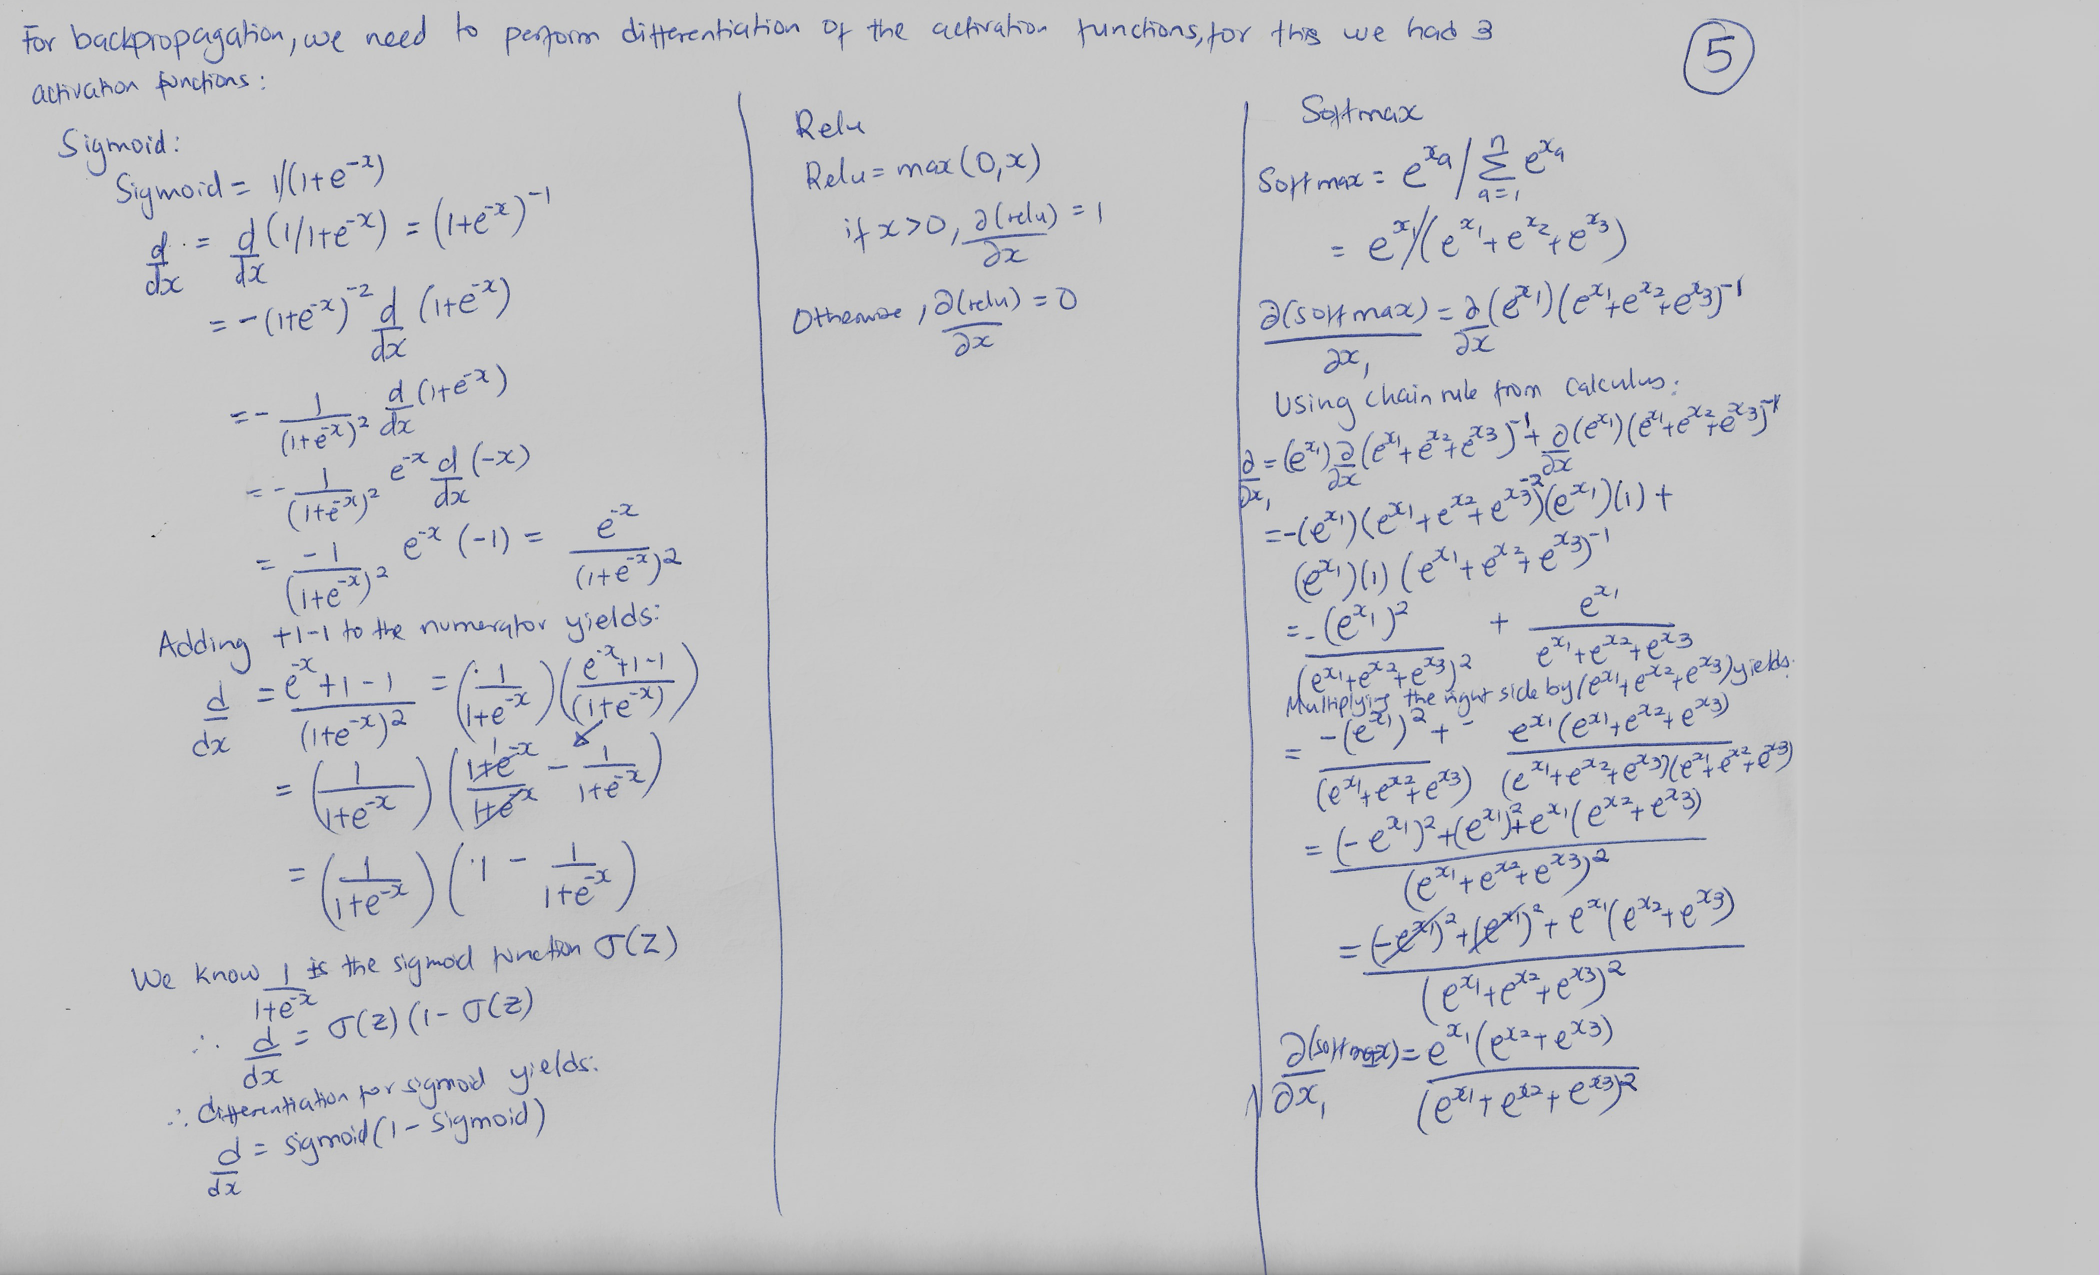 For backpropagation, we need to perform differentiation of the activation functions, for this we had 3
activation functions:
5
Sigmoid:
Sigmoid = 1/(1+e^-x)
d/dx = d/dx (1/1+e^-x) = (1+e^-x)^-1
= -(1+e^-x)^-2 d/dx (1+e^-x)
= - 1/(1+e^-x)^2 d/dx (1+e^-x)
= - 1/(1+e^-x)^2 e^-x d/dx (-x)
= -1/(1+e^-x)^2 e^-x (-1) = e^-x/(1+e^-x)^2
Adding +1-1 to the numerator yields:
d/dx = e^-x+1-1/(1+e^-x)^2 = (1/1+e^-x)(e^-x+1-1/(1+e^-x))
= (1/1+e^-x)(1+e^-x/1+e^-x - 1/1+e^-x)
= (1/1+e^-x)(1 - 1/1+e^-x)
We know 1/1+e^-x is the sigmod function σ(z)
∴ d/dx = σ(z)(1-σ(z)
∴ differentiation for sigmoid yields:
d/dx = sigmoid(1-sigmoid)
Relu
Relu = max(0,x)
if x>0, ∂(relu)/∂x = 1
Otherwise, ∂(relu)/∂x = 0
Softmax
Softmax = e^xa / Σ_{a=1}^{n} e^xa
= e^x1/(e^x1+e^x2+e^x3)
∂(softmax)/∂x1 = ∂/∂x (e^x1)(e^x1+e^x2+e^x3)^-1
Using chain rule from calculus:
∂/∂x1 = (e^x1) ∂/∂x (e^x1+e^x2+e^x3)^-1 + ∂/∂x (e^x1)(e^x1+e^x2+e^x3)^-1
= -(e^x1)(e^x1+e^x2+e^x3)^-2 (e^x1)(1) +
(e^x1)(1)(e^x1+e^x2+e^x3)^-1
= -(e^x1)^2/(e^x1+e^x2+e^x3)^2 + e^x1/e^x1+e^x2+e^x3
Multiplying the right side by (e^x1+e^x2+e^x3) yields:
= -(e^x1)^2/(e^x1+e^x2+e^x3) + e^x1(e^x1+e^x2+e^x3)/(e^x1+e^x2+e^x3)(e^x1+e^x2+e^x3)
= (-e^x1)^2+(e^x1)^2+e^x1(e^x2+e^x3)/(e^x1+e^x2+e^x3)^2
= (-e^x1)^2+(e^x1)^2+e^x1(e^x2+e^x3)/(e^x1+e^x2+e^x3)^2
∂(softmax)/∂x1 = e^x1(e^x2+e^x3)/(e^x1+e^x2+e^x3)^2